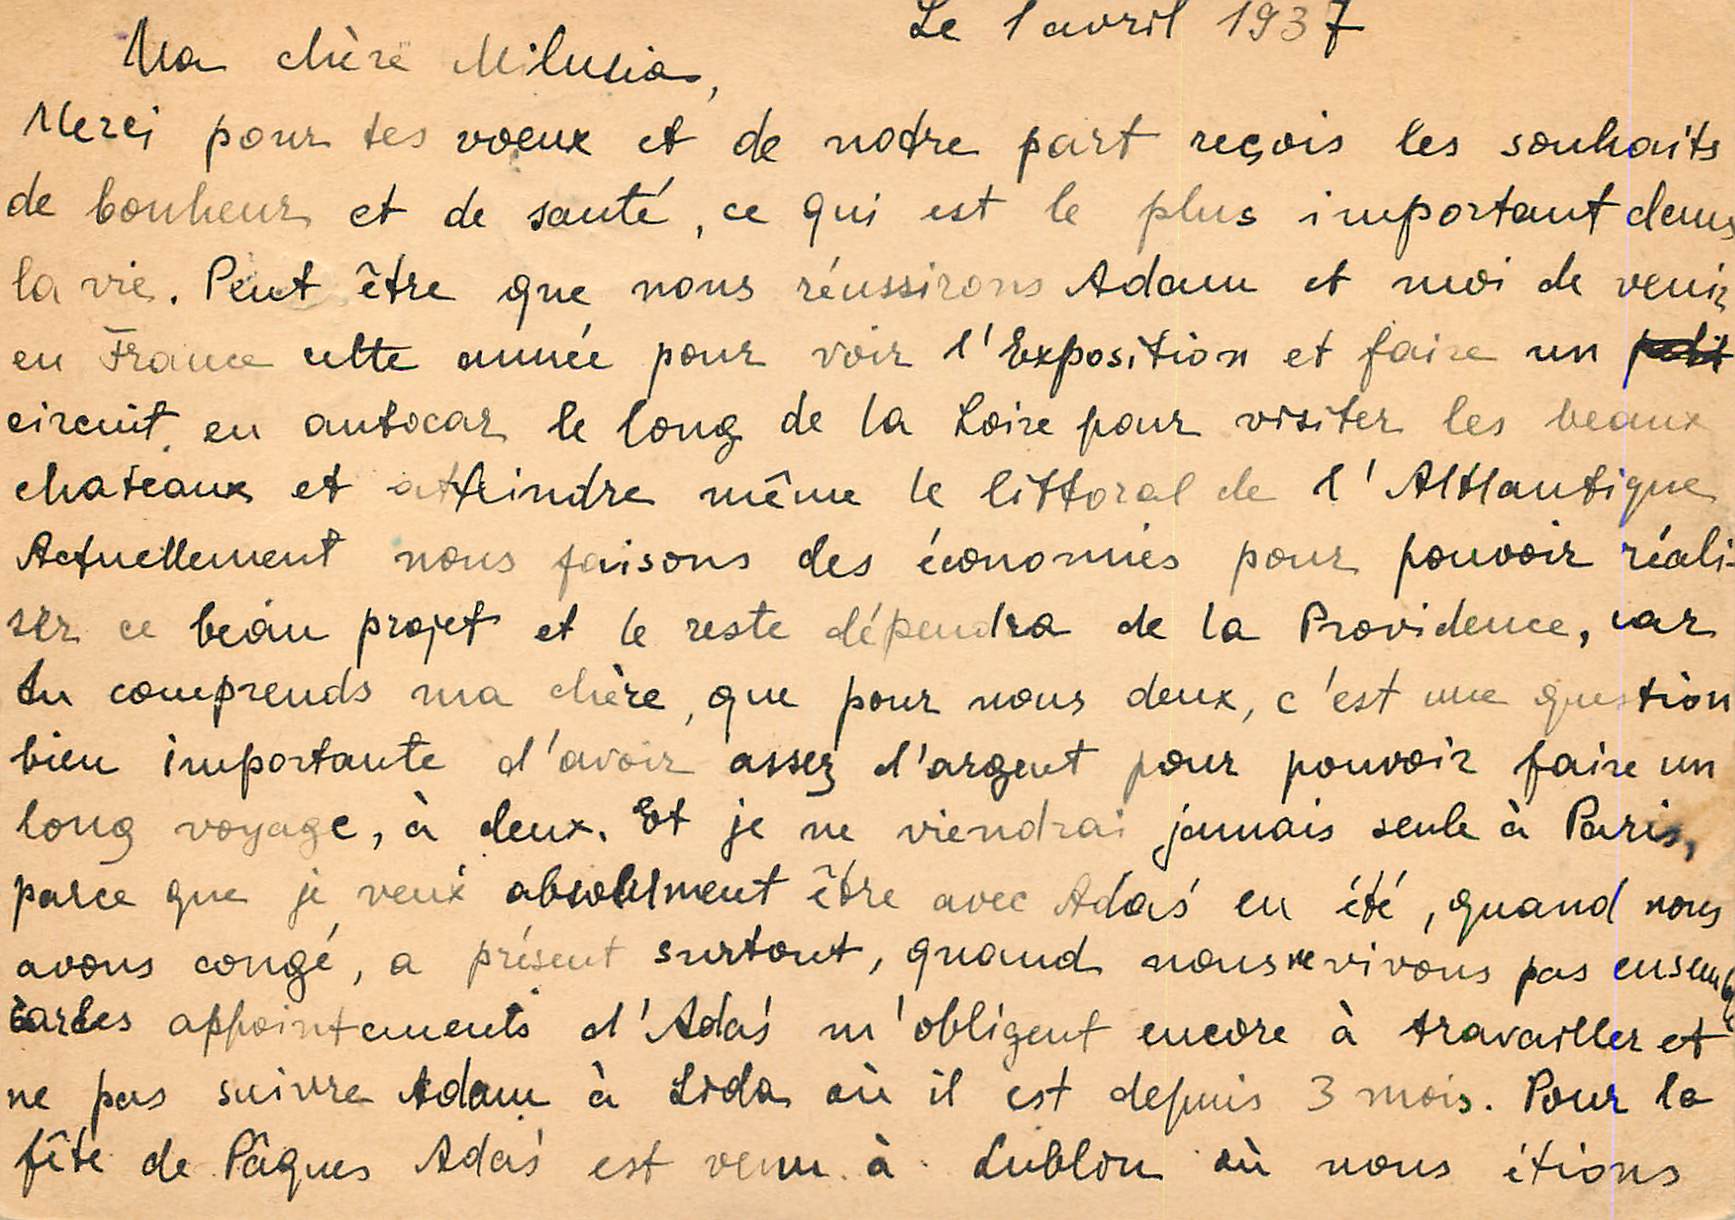 Le 1 avril 1937
Ma chère Milusia,
Merci pour tes voeux et de notre part reçois les souhaits
de bonheur et de santé, ce qui est le plus important dans
la vie. Peut être que nous réussirons Adam et moi de venir
en France cette année pour voir l'Exposition et faire un petit
circuit en autocar le long de la Loire pour visiter les beaux
chateaux et atteindre même le littoral de l'Atltlantique
Actuellement nous faisons des économies pour pouvoir réali-
ser ce beau projet et le reste dépendra de la Providence, car
tu comprends ma chère, que pour nous deux, c'est une question
bien importante d'avoir assez d'argent pour pouvoir faire un
long voyage, à deux. Et je ne viendrai jamais seule à Paris,
parce que je veux absolument être avec Adaś en été, quand nous
avons congé, a présent surtout, quand nous ne vivons pas ensemble
car les appointements d'Adaś m'obligent encore à travailler et
ne pas suivre Adam à Lida où il est depuis 3 mois. Pour la
fête de Pâques Adaś est venu à Lublin où nous étions